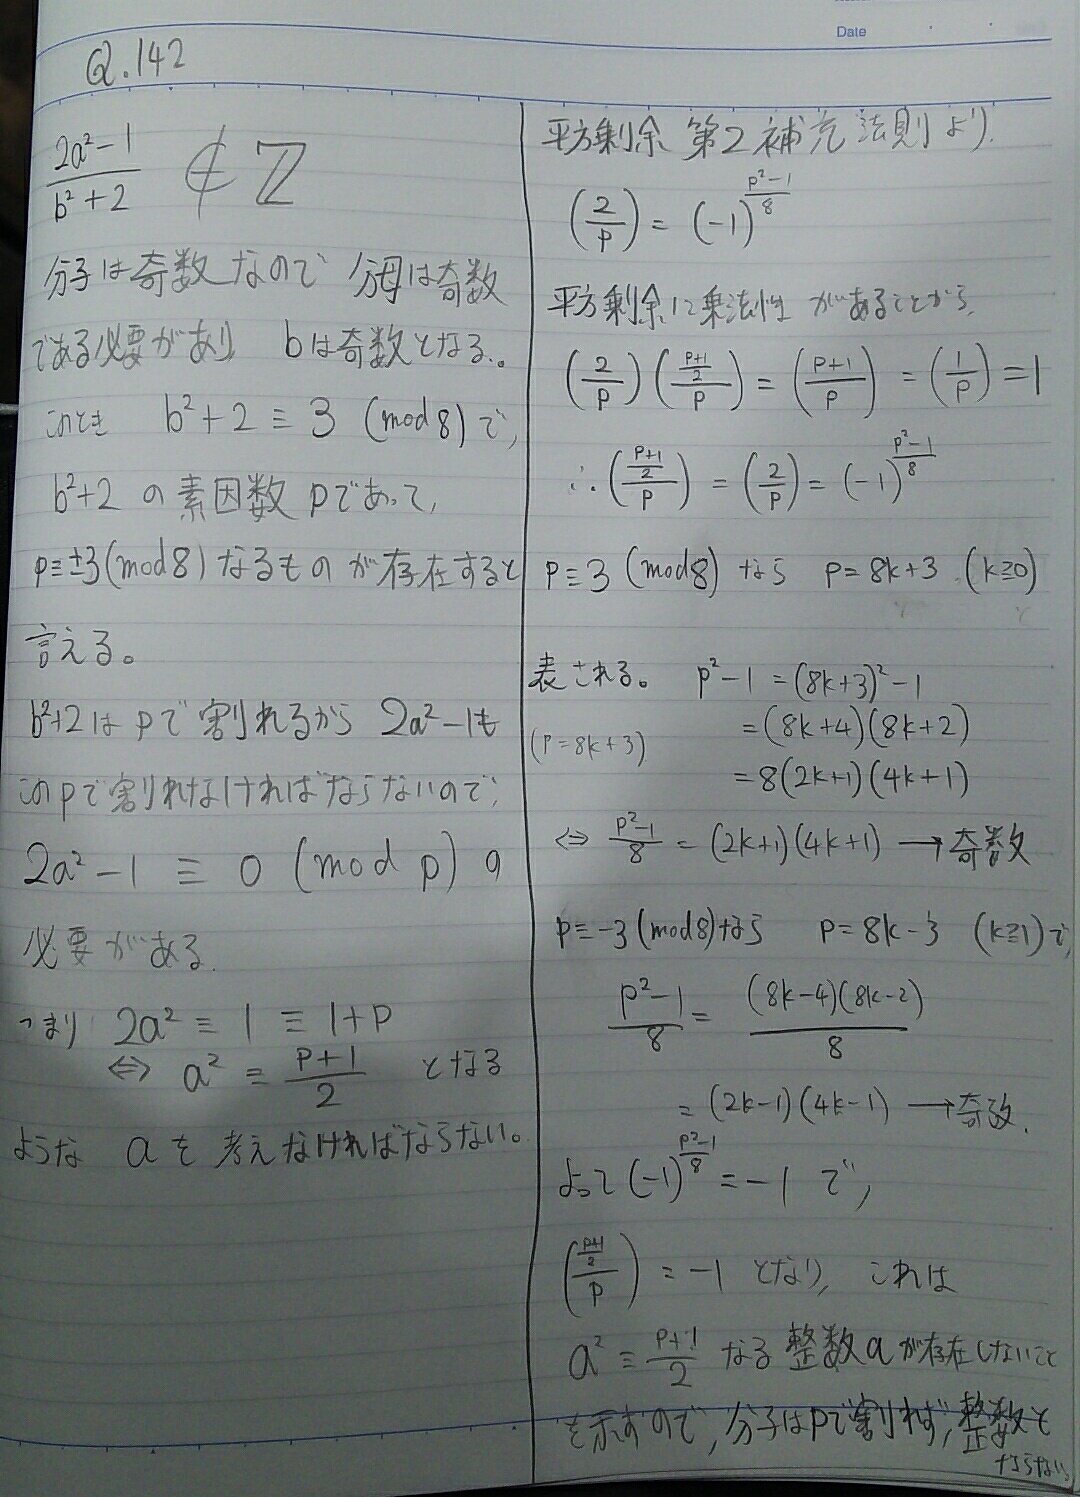 Date
Q.142
2a²-1 / b²+2 ∉ ℤ
分子は奇数なので 分母は奇数
である必要があり bは奇数となる。
このとき b²+2 ≡ 3 (mod 8) で,
b²+2 の素因数 p であって,
p≡±3(mod 8) なるものが存在すると
言える。
b²+2 は p で割れるから 2a²-1も
このpで割れなければならないので,
2a²-1 ≡ 0 (mod p) の
必要がある.
つまり 2a² ≡ 1 ≡ 1+p
⇔ a² ≡ (p+1)/2 となる
ような a を考えなければならない。
平方剰余 第2補充法則より,
(2/p) = (-1)^((p²-1)/8)
平方剰余に乗法性があることから,
(2/p)(((p+1)/2)/p) = ((p+1)/p) = (1/p) = 1
∴ (((p+1)/2)/p) = (2/p) = (-1)^((p²-1)/8)
p≡3 (mod 8) なら p=8k+3 (k≧0) と
表される。 p²-1 = (8k+3)²-1
(p=8k+3) = (8k+4)(8k+2)
= 8(2k+1)(4k+1)
⇔ (p²-1)/8 = (2k+1)(4k+1) → 奇数
p≡-3(mod 8)なら p=8k-3 (k≧1)で,
(p²-1)/8 = (8k-4)(8k-2)/8
= (2k-1)(4k-1) → 奇数.
よって (-1)^((p²-1)/8) = -1 で,
(((p+1)/2)/p) = -1 となり, これは
a² ≡ (p+1)/2 なる整数aが存在しないこと
を示すので, 分子はpで割れず, 整数と
ならない。